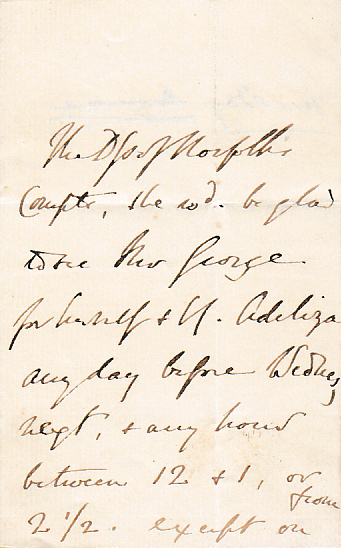 The Dss of Norfolks
Compts, she wd. be glad
to see Mr George
for herself & Ly. Adeliza
any day before Wednes
next, & any hour
between 12 & 1, or
from
2 1/2. except on